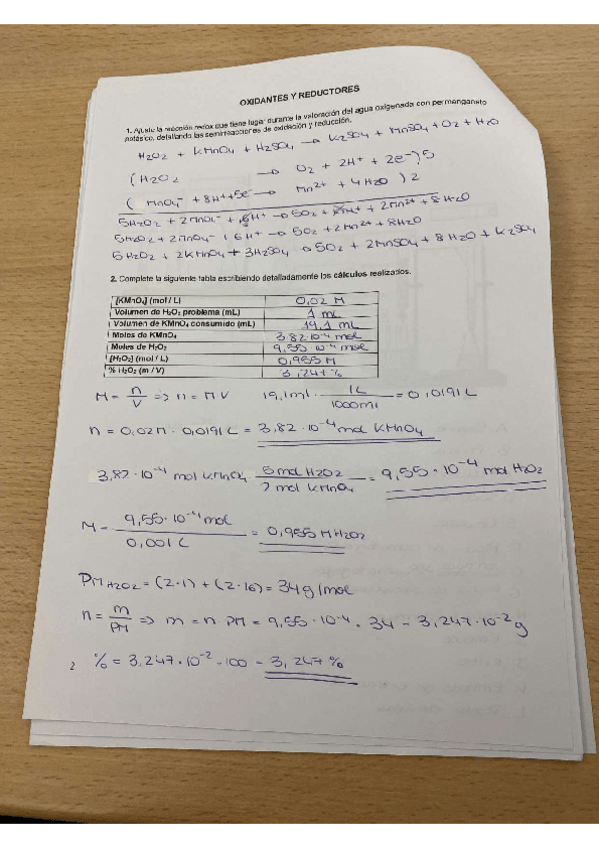 OXIDANTES Y REDUCTORES
1. Ajuste la reacción redox que tiene lugar durante la valoración del agua oxigenada con permanganato
potásico, detallando las semirreacciones de oxidación y reducción.
H2O2 + KMnO4 + H2SO4 → K2SO4 + MnSO4 + O2 + H2O
(H2O2 → O2 + 2H+ + 2e-)5
(MnO4- + 8H+ + 5e- → Mn2+ + 4H2O)2
5H2O2 + 2MnO4- + 6H+ → 5O2 + 2Mn2+ + 8H2O
5H2O2 + 2MnO4- + 6H+ → 5O2 + 2Mn2+ + 8H2O
5H2O2 + 2KMnO4 + 3H2SO4 → 5O2 + 2MnSO4 + 8H2O + K2SO4
2. Complete la siguiente tabla escribiendo detalladamente los cálculos realizados.
[KMnO4] (mol / L) 0,02 M
Volumen de H2O2 problema (mL) 1 mL
Volumen de KMnO4 consumido (mL) 19,1 mL
Moles de KMnO4 3,82·10-4 mol
Moles de H2O2 9,55·10-4 mol
[H2O2] (mol / L) 0,955 M
% H2O2 (m / V) 3,247 %
M = n/V => n = M V 19,1ml · 1L/1000ml = 0,0191 L
n = 0,02M · 0,0191 L = 3,82 · 10-4 mol KMnO4
3,82 · 10-4 mol KMnO4 · 5 mol H2O2/2 mol KMnO4 = 9,55 · 10-4 mol H2O2
M = 9,55·10-4 mol/0,001 L = 0,955 M H2O2
PM H2O2 = (2·1) + (2·16) = 34 g/mol
n = m/PM => m = n · PM = 9,55 · 10-4 · 34 = 3,247·10-2 g
2 % = 3,247·10-2 · 100 = 3,247 %